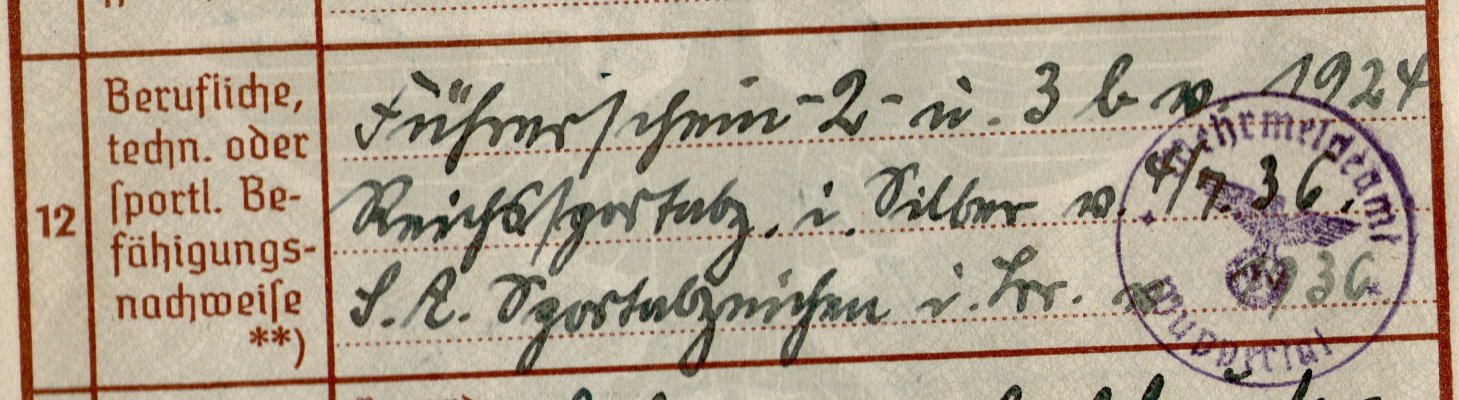 12
Berufliche,
techn. oder
sportl. Be-
fähigungs-
nachweise
**)
Führerschein - 2 - u. 3 b v. 1924
Reichssportabz. i. Silber v. 4/7. 36.
S. A. Sportabzeichen i. Brz. v. 1936.
Wehrmeldeamt
Wuppertal